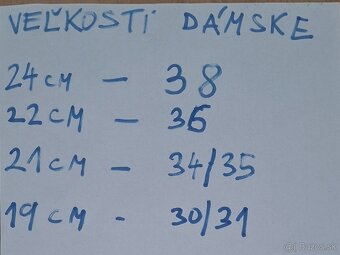 VEĽKOSTI DÁMSKE
24 CM - 38
22 CM - 36
21 CM - 34/35
19 CM - 30/31
© Bazos.sk